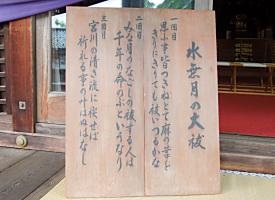 水無月の大祓
一回目
思ふ事皆つきねとて麻の葉を
きりにきりても祓いつるかな
二回目
みな月のなごしの祓する人は
千年の命のぶというなり
三回目
宮川の清き流に
祈れる事の叶はぬはなし